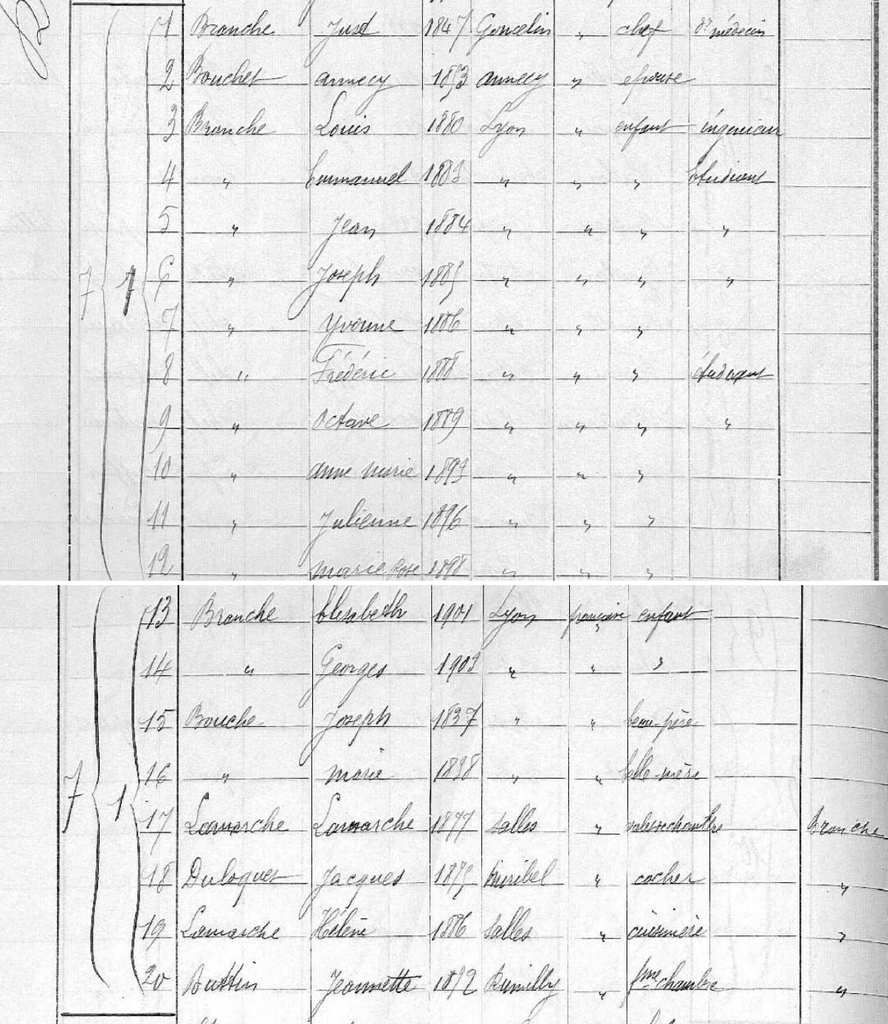 1 Branche Just 1847 Goncelin " chef dr médecin
2 Bouchet annecy 1853 annecy " épouse
3 Branche Louis 1880 Lyon " enfant ingénieur
4 " Emmanuel 1883 " " " Etudiant
5 " Jean 1884 " " " "
7 1 6 " Joseph 1885 " " " "
7 " Yvonne 1886 " " "
8 " Frédéric 1888 " " " étudiant
9 " Octave 1889 " " " "
10 " anne marie 1893 " " "
11 " Julienne 1896 " " "
12 " marie Rose 1898 " " "
13 Branche Elisabeth 1901 Lyon française enfant
14 " Georges 1903 " " "
15 Bouche Joseph 1837 " " beau-père
16 " marie 1838 " " belle-mère
7 1 17 Lamarche Lamarche 1877 Salles " valet de chambre Branche
18 Duloquet Jacques 1875 Miribel " cocher "
19 Lamarche Hélène 1886 Salles " cuisinière "
20 Buttin Jeannette 1872 Rumilly " fme chambre "